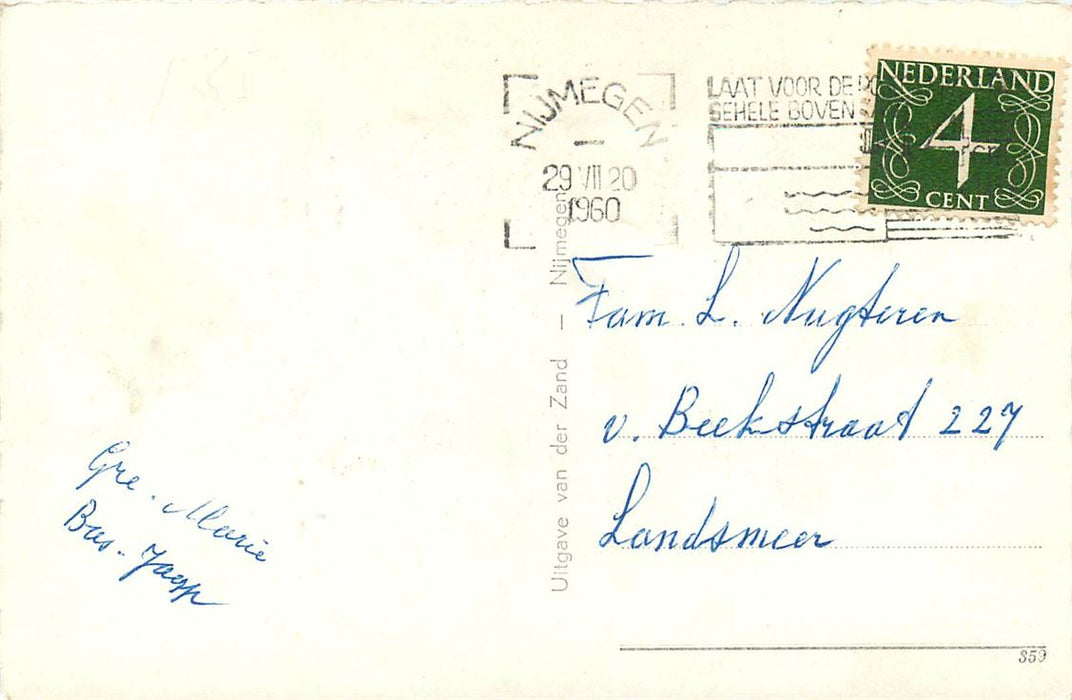 NIJMEGEN
29 VII 20
1960
LAAT VOOR DE
GEHELE BOVEN
NEDERLAND
4
CENT
Uitgave van der Zand — Nijmegen
Fam. L. Nugteren
v. Beekstraat 227
Landsmeer
Gre. Marie
Bas. Jaap
359